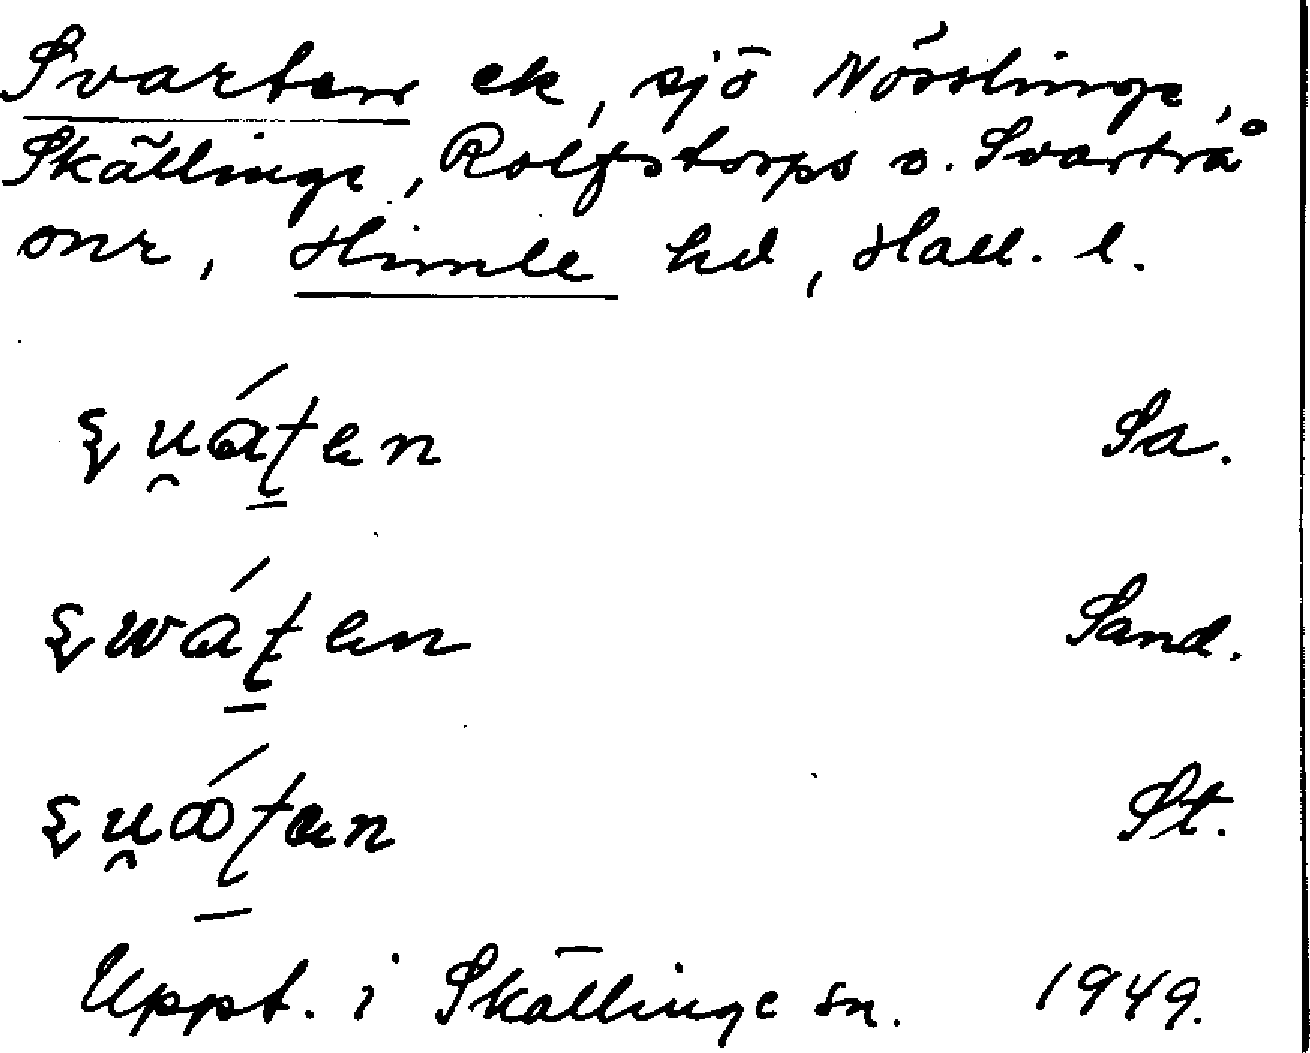 Svarten ek, sjö Nösslinge,
Skällinge, Rolfstorps o. Svartrå
snr, Himle hd, Hall. l.
Sa.
Sand.
St.
Uppt. i Skällinge sn. 1949.